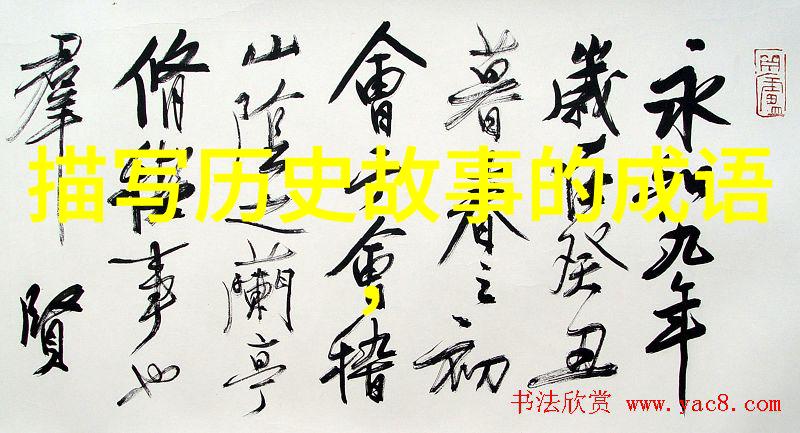 永和九年
歲在癸丑
暮春之初
會于會稽
山陰之蘭亭
脩禊事也
羣賢
描写历史故事的成语
,
书法欣赏 www.yac8.com